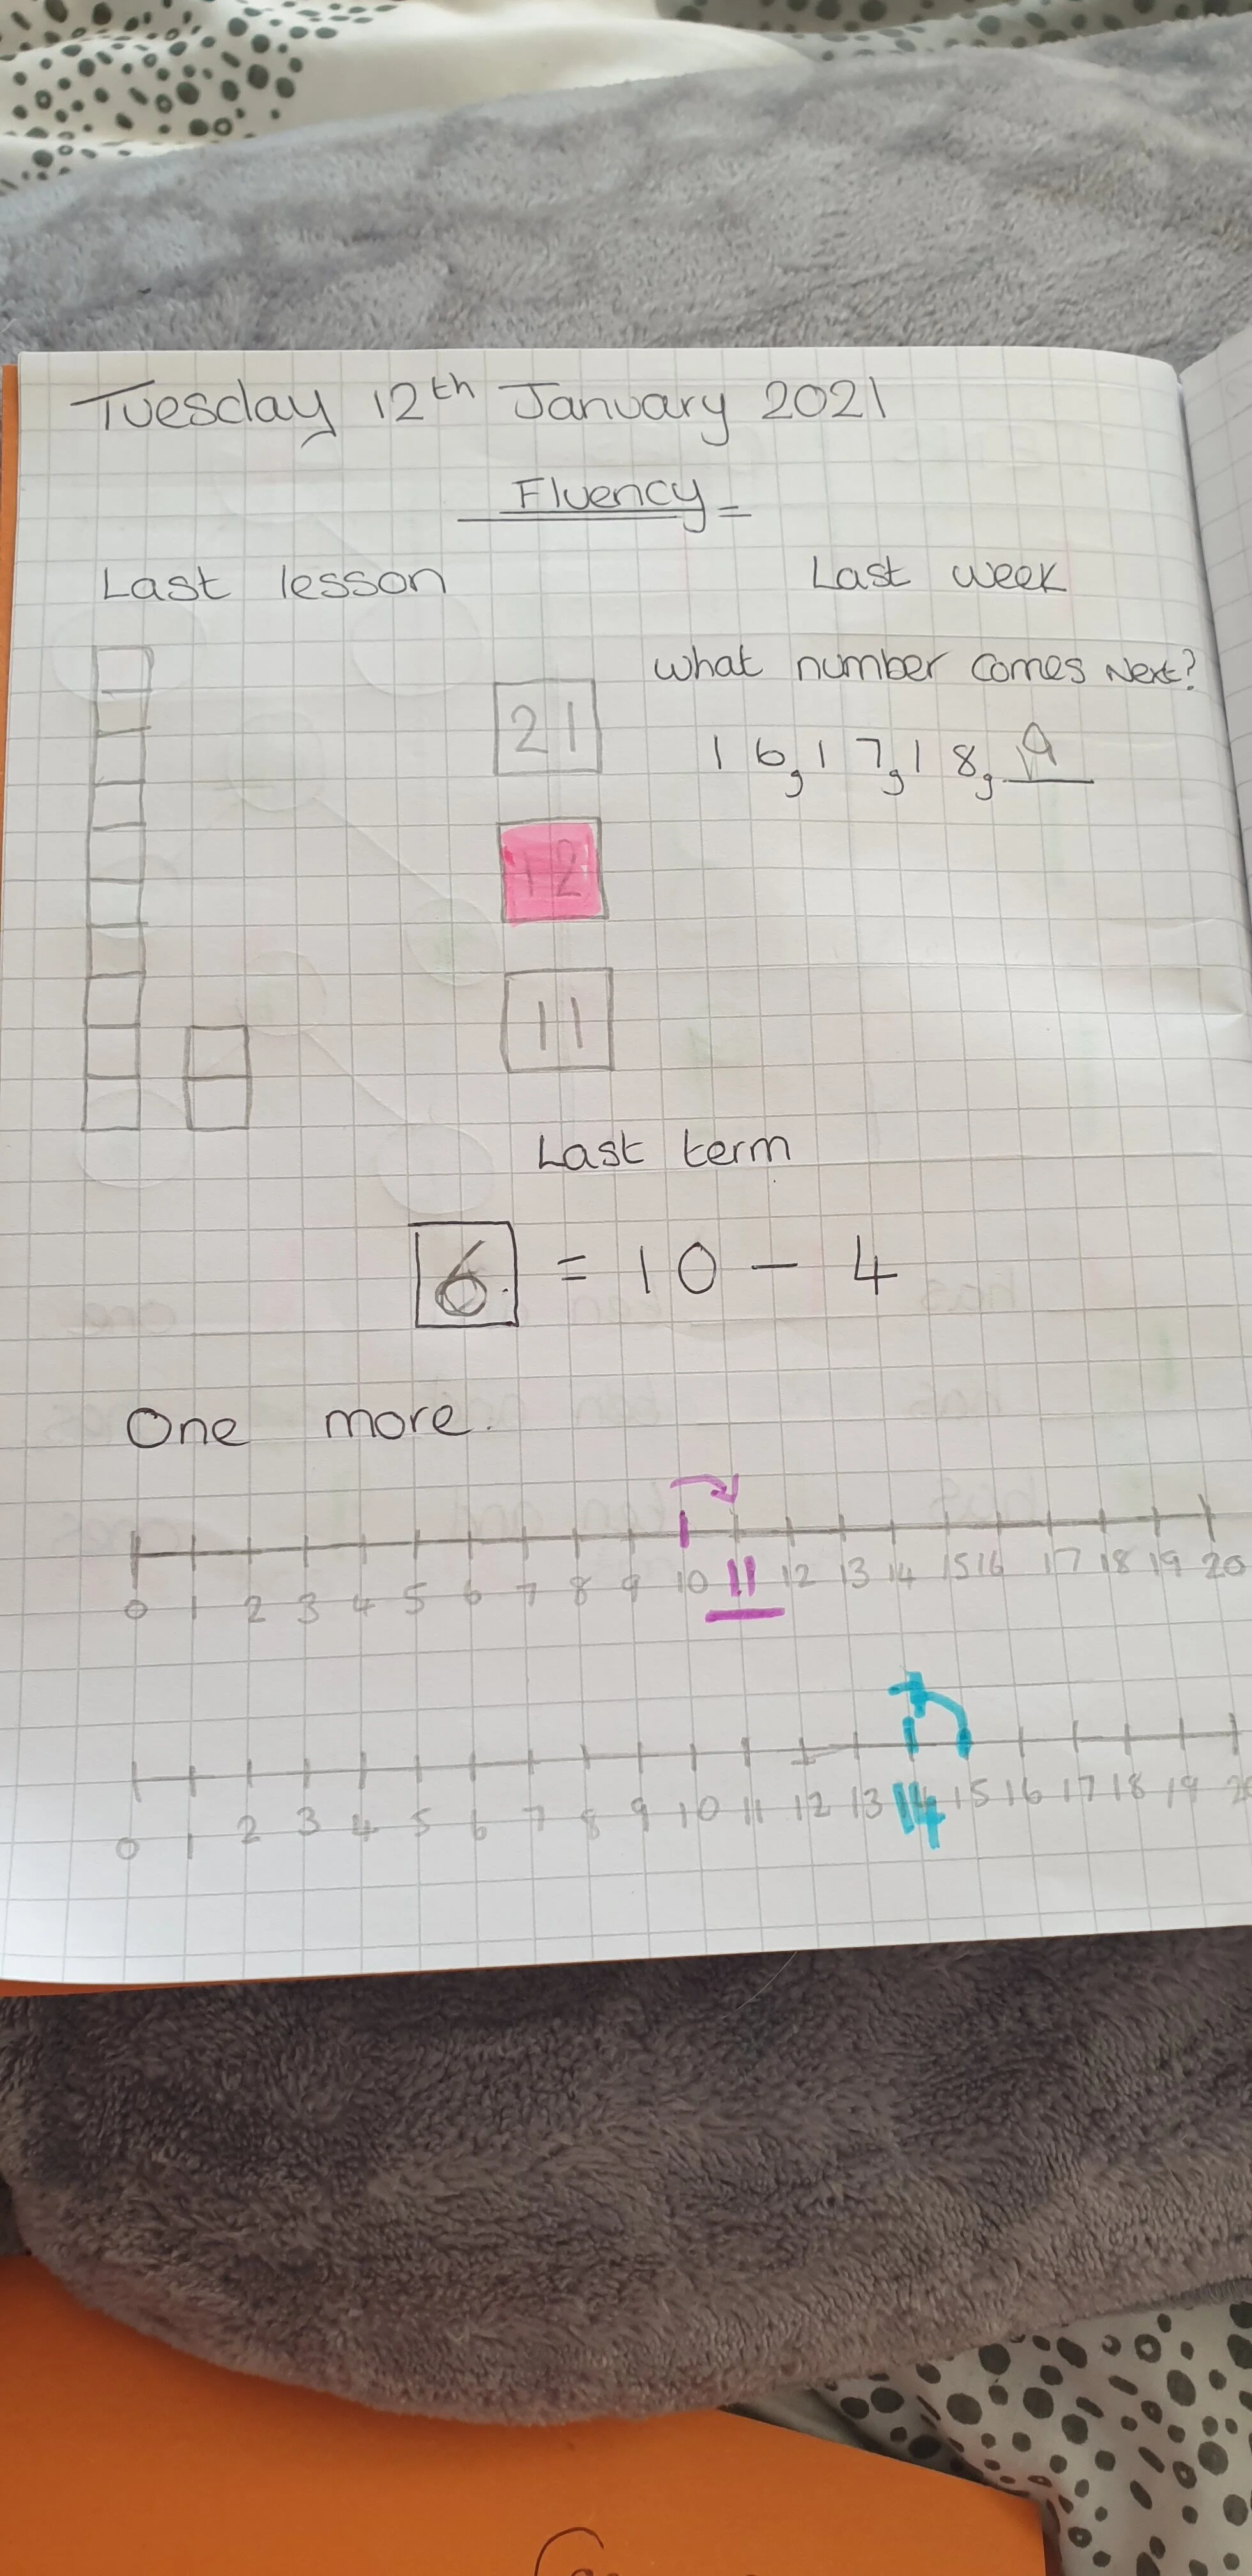 Tuesday 12th January 2021
Fluency
Last lesson
Last week
What number comes Next?
21
16, 17, 18, 19
12
11
Last term
6 = 10 - 4
One more.
0 1 2 3 4 5 6 7 8 9 10 11 12 13 14 15 16 17 18 19 20
0 1 2 3 4 5 6 7 8 9 10 11 12 13 14 15 16 17 18 19 20